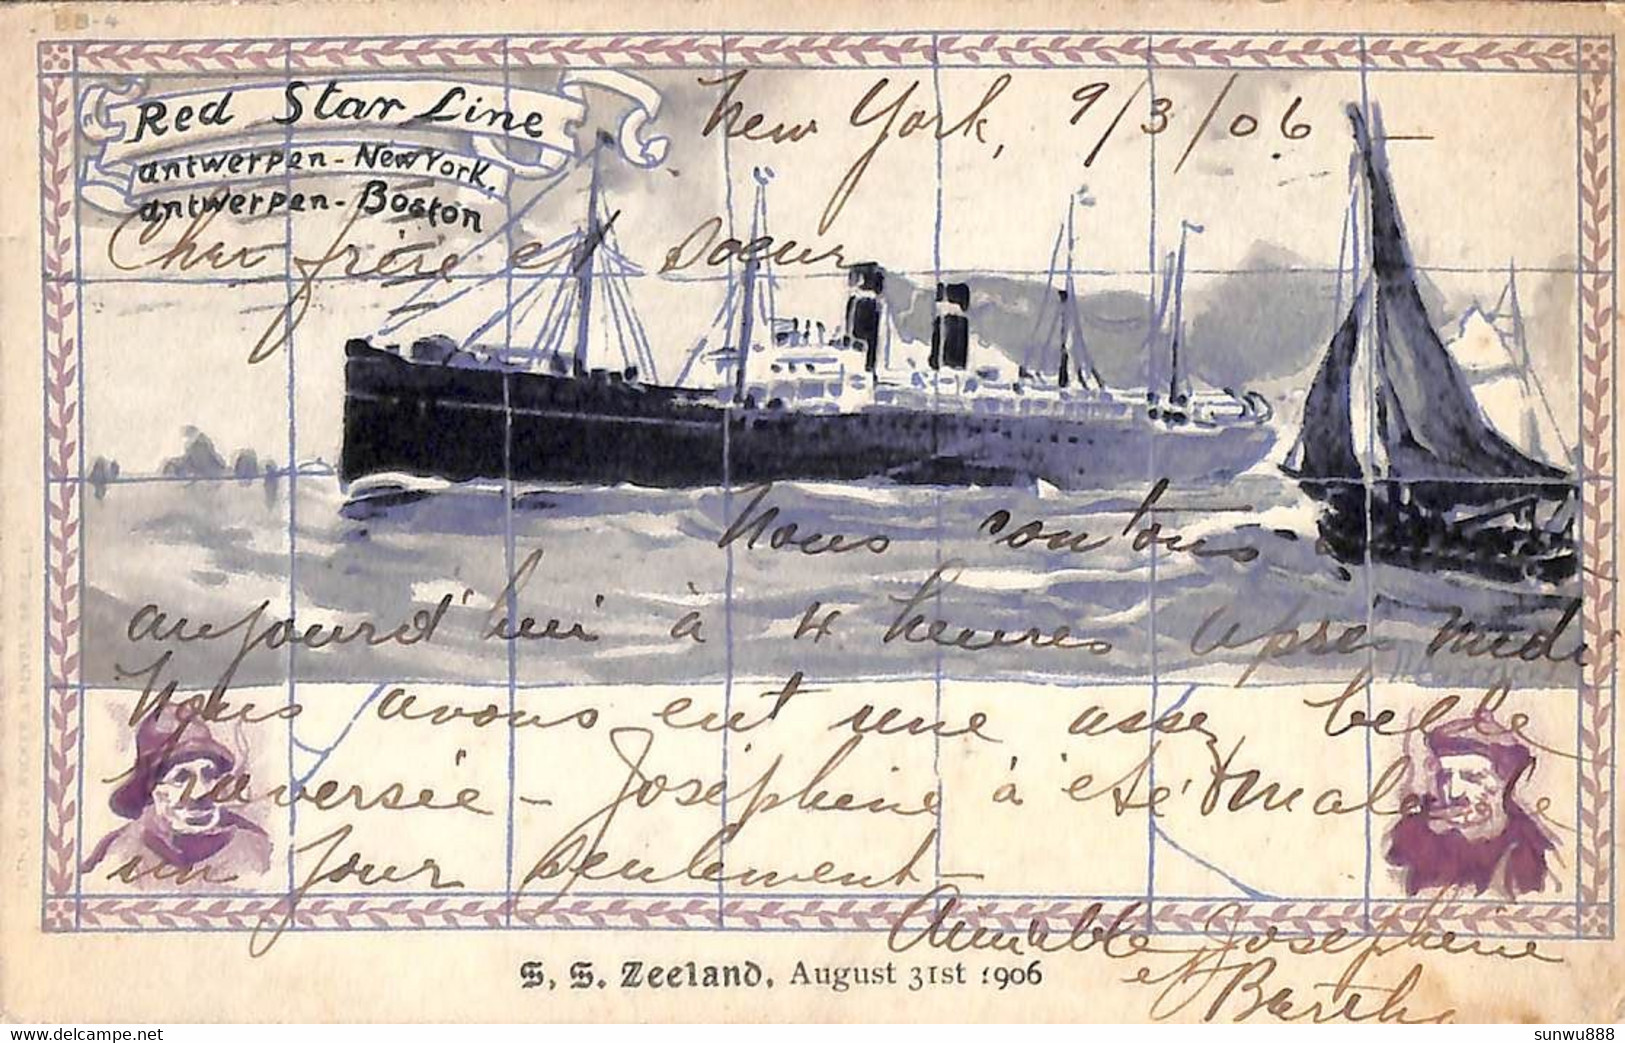 BB-4
Red Star Line
antwerpen - New York.
antwerpen - Boston
New York, 9/3/06 —
Cher frère et soeur
Nous contons
aujourd'hui à 4 heures après midi
Nous avons eut une assez belle
traversée - Joséphine à été malade
un jour seulement -
Aimable Josephine
et Bartha
S. S. Zeeland, August 31st 1906
sunwu888